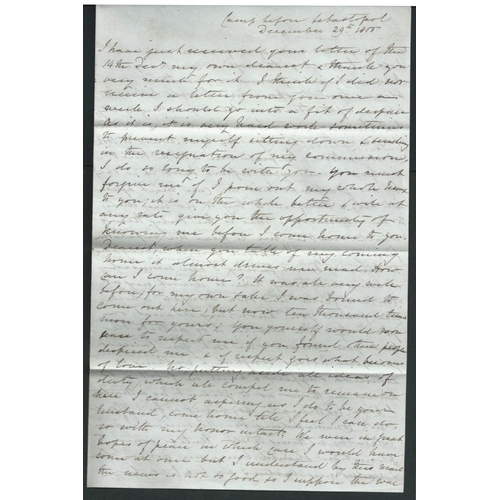 Camp before Sebastopol
December 29th 1855
I have just received your letter of the
14th Decr my own dearest & thank you
very much for it. I think if I did not
receive a letter from you once a
week I should go into a fit of despair
As it is it is very hard work sometimes
to prevent myself sitting down & sending
in the resignation of my commission,
I do so long to be with you. You must
forgive me if I pour out my whole heart
to you; it is on the whole better & will at
any rate give you the opportunity of
knowing me before I come home to you
Dearest, when you talk of my coming
home it almost drives me mad. How
can I come home? It was all very well
before; for my own sake I was bound to
come out here; but now ten thousand times
more for yours; you yourself would soon
cease to respect me if you found other people
despised me & if respect goes what becomes
of love. So putting aside all ideas of
duty, which all compel me to remain
here I cannot aspiring as I do to be your
husband, come home till I feel I can do
so with my honor intact. We were in great
hopes of peace in which case I would have
come at once but I understand by this mail
the news is not so good so I suppose the war